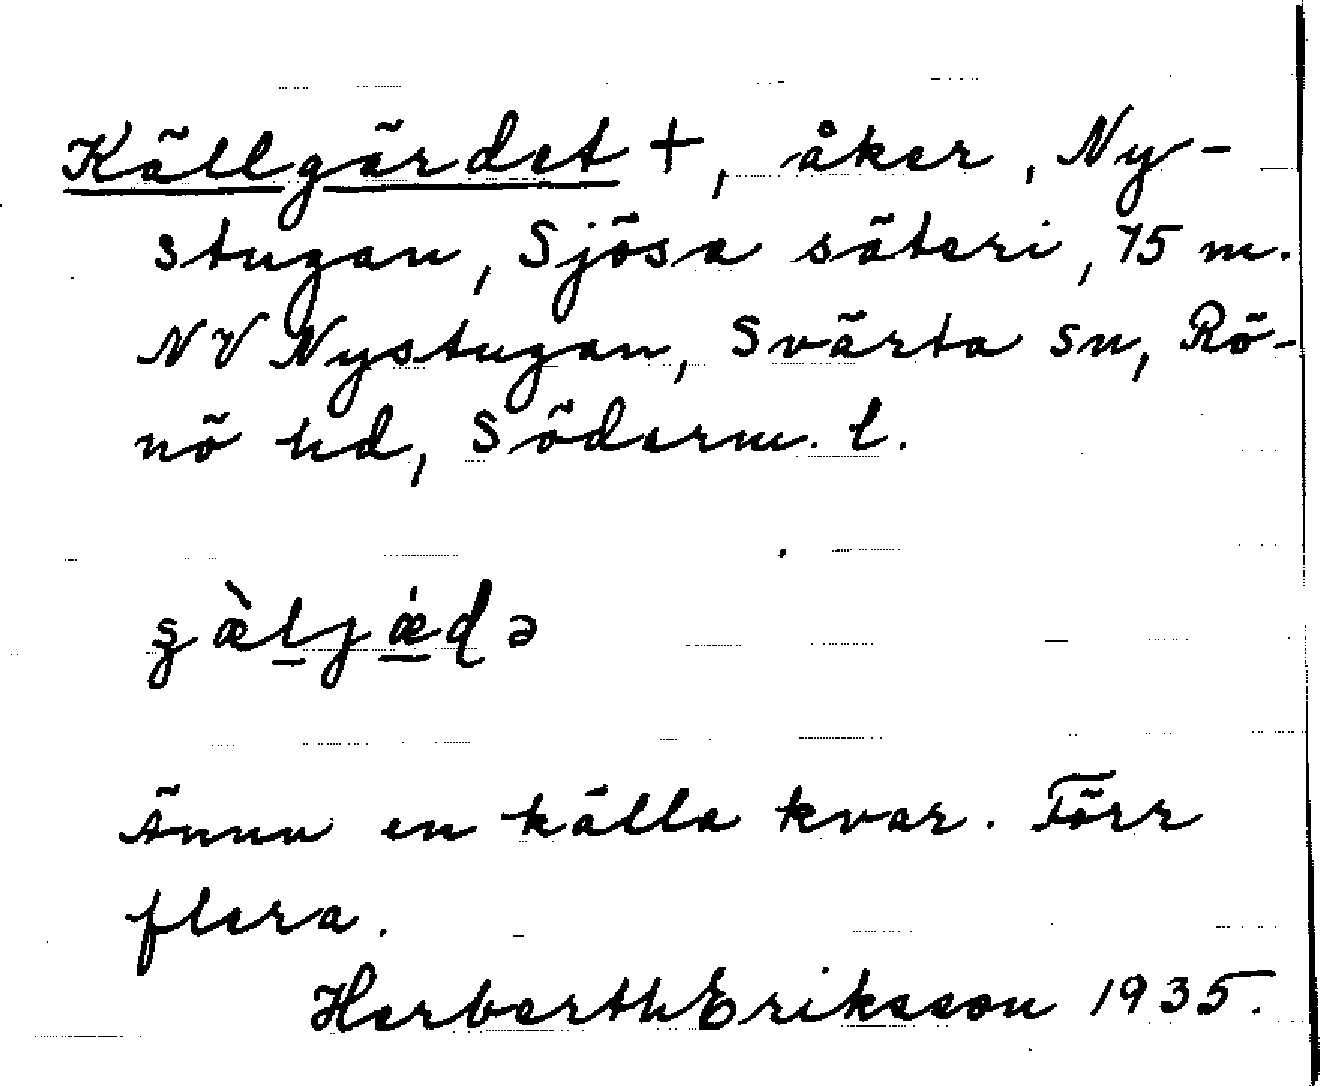 Källgärdet +, åker, Ny-
stugan, Sjösa säteri, 75 m.
NV Nystugan, Svärta sn, Rö-
nö hd, Söderm. l.
Ännu en källa kvar. Förr
flera.
Herberth Eriksson 1935.